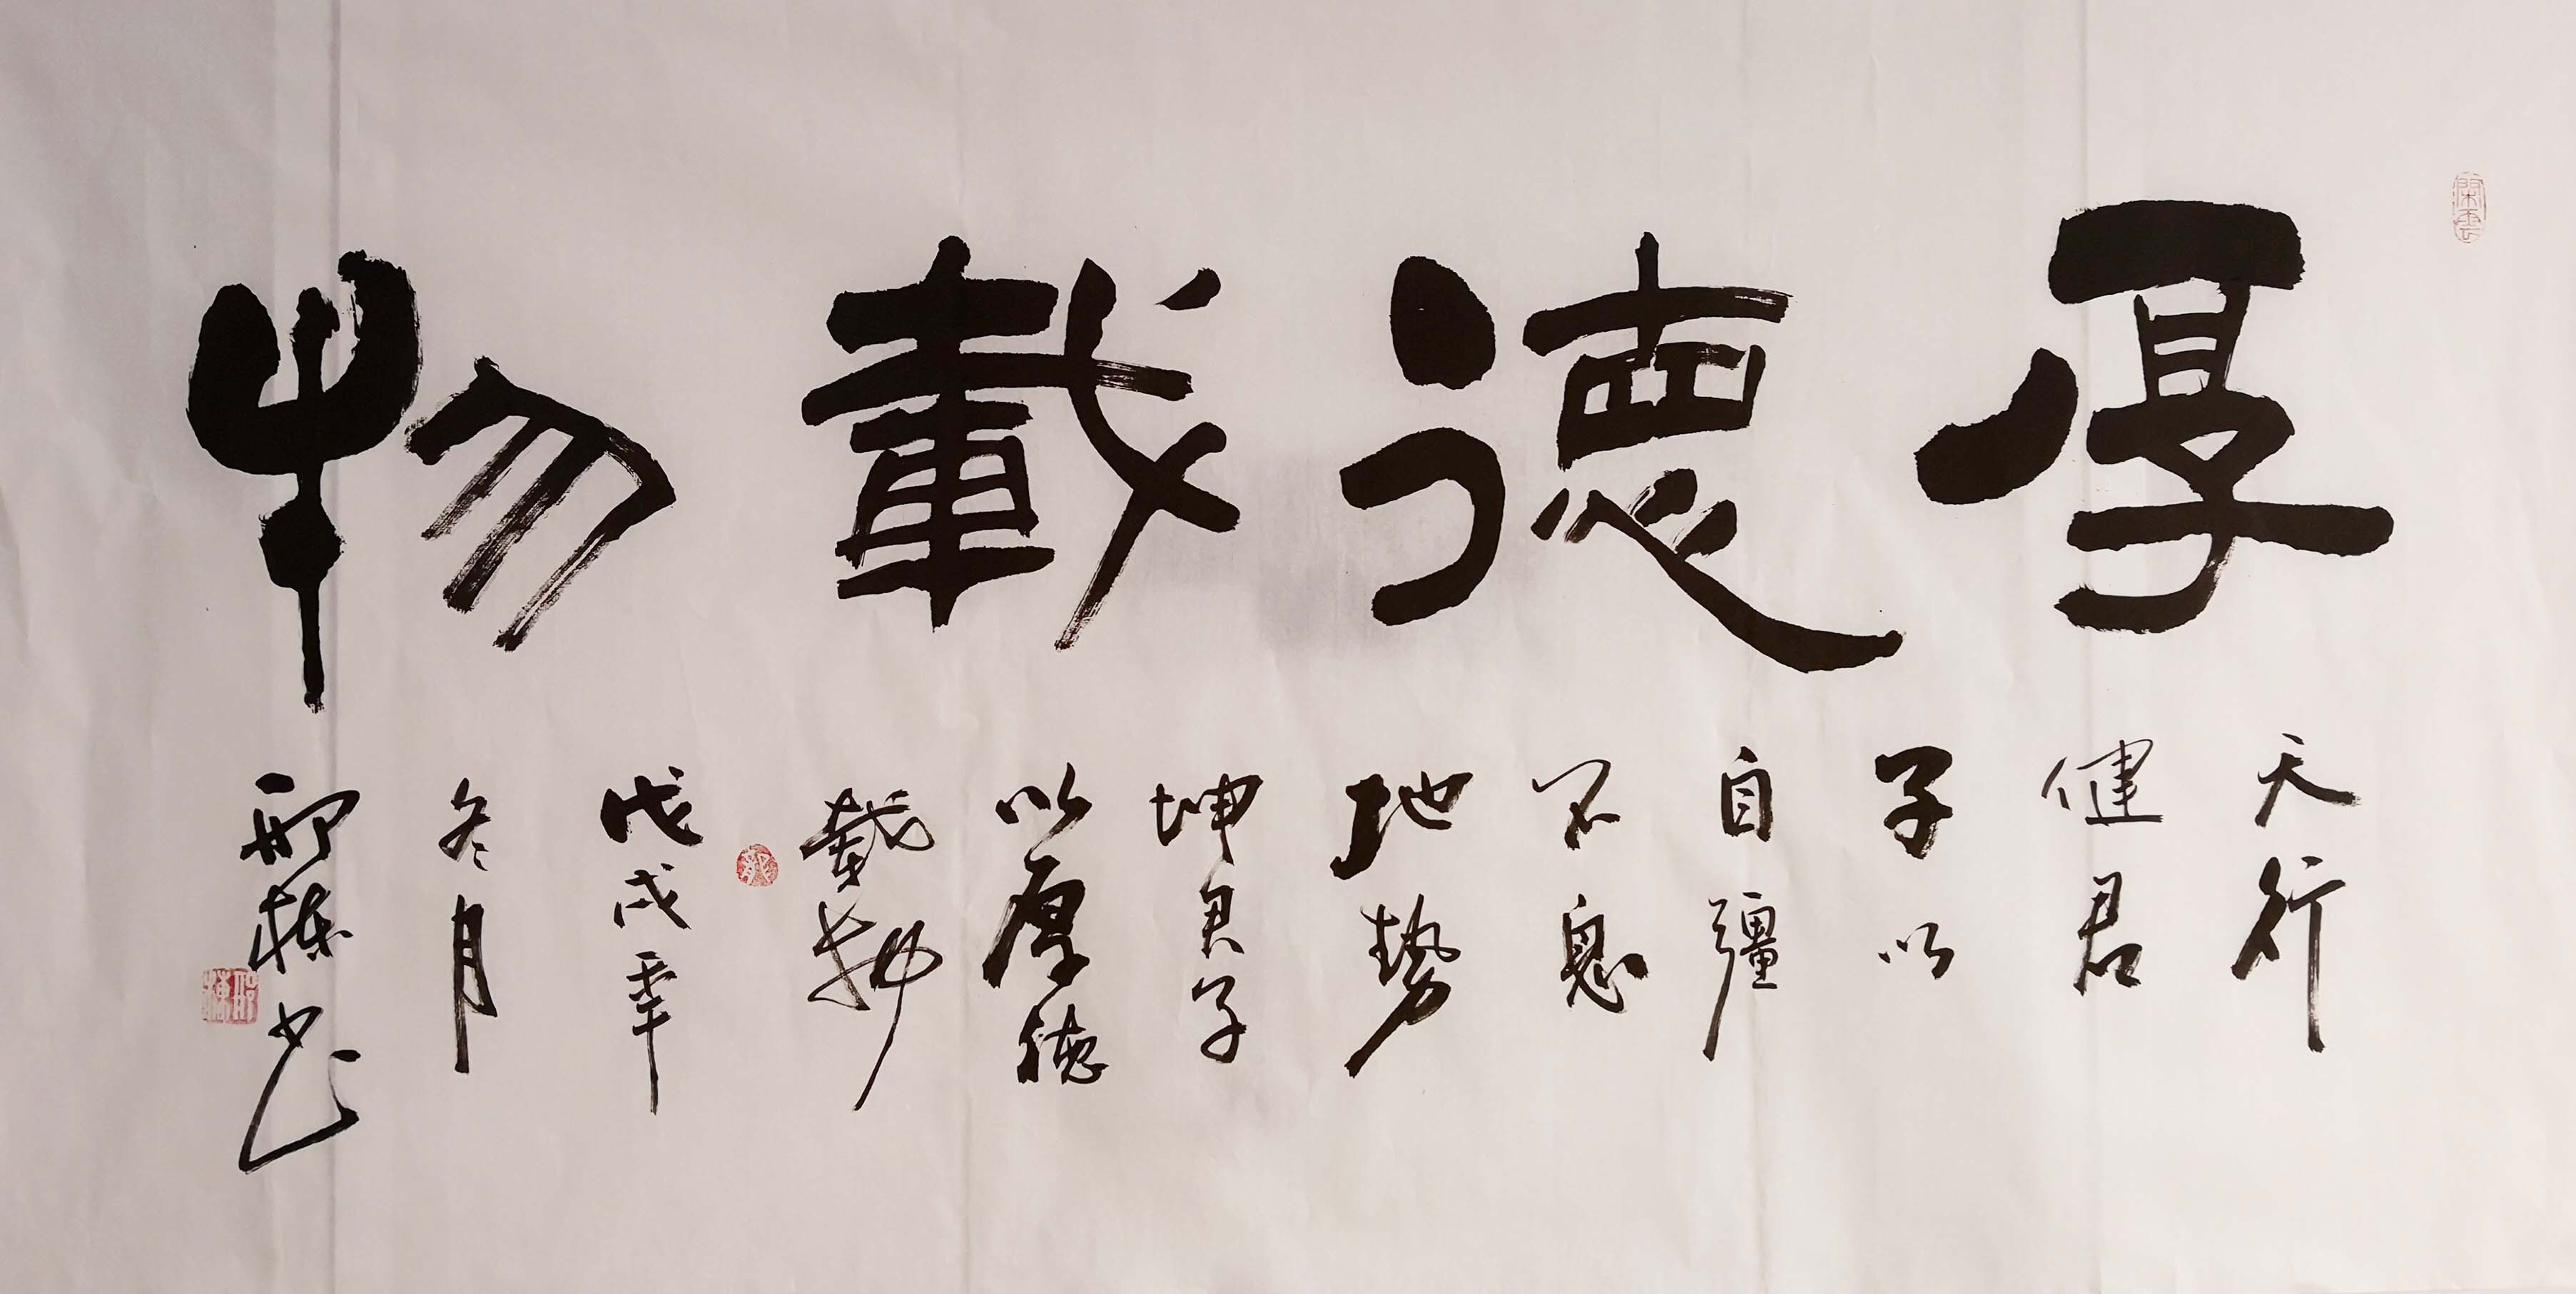 厚德載物
天行
健君
子以
自彊
不息
地势
坤君子
以厚德
載物
戊戌年
冬月
邢棟书
邢棟